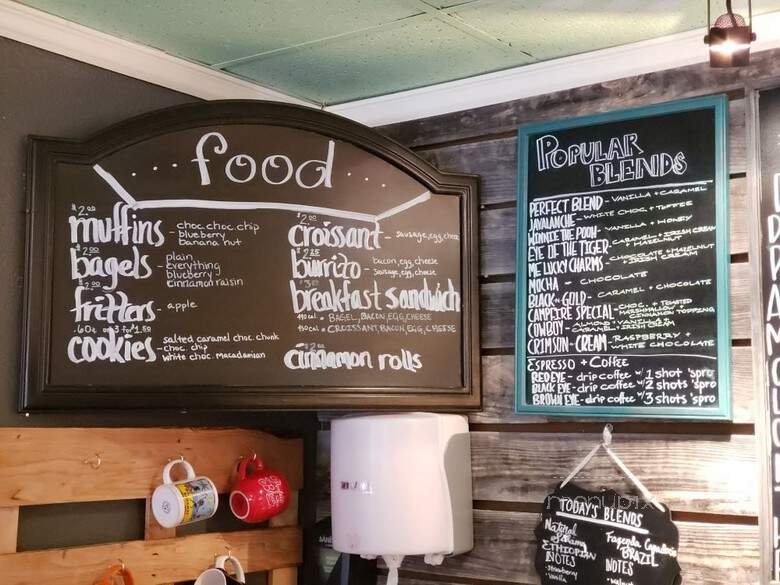 food
$2.00
muffins - choc.choc.chip
blueberry
banana nut
$2.00
bagels - plain
everything
blueberry
cinnamon raisin
$2.00
fritters - apple
.60¢ or 3 for $1.50
cookies salted caramel choc.chunk
choc.chip
white choc.macadamian
$2.00
croissant - sausage, egg, cheese
burrito - bacon, egg, cheese
- sausage, egg, cheese
breakfast sandwich
- BAGEL, BACON, EGG, CHEESE
- CROISSANT, BACON, EGG, CHEESE
cinnamon rolls
POPULAR
BLENDS
PERFECT BLEND - VANILLA + CARAMEL
JAVALANCHE - WHITE CHOC. + TOFFEE
WINNIE THE POOH - VANILLA + HONEY
EYE OF THE TIGER - CARAMEL + IRISH CREAM
+ HAZELNUT
ME LUCKY CHARMS - CHOCOLATE + HAZELNUT
+ IRISH CREAM
MOCHA - CHOCOLATE
BLACK N GOLD - CARAMEL + CHOCOLATE
CAMPFIRE SPECIAL - CHOC. + TOASTED
MARSHMALLOW +
CINNAMON TOPPING
COWBOY - ALMOND + VANILLA +
CARAMEL + IRISH CREAM
CRIMSON + CREAM - RASPBERRY +
WHITE CHOCOLATE
ESPRESSO + COFFEE
RED EYE - drip coffee w/ 1 shot 'spro
BLACK EYE - drip coffee w/ 2 shots 'spro
BROWN EYE - drip coffee w/ 3 shots 'spro
TODAY'S BLENDS
Natural
ETHIOPIAN
NOTES
- strawberry
- vanilla
Fazenda
BRAZIL
NOTES
- walnut
menupix